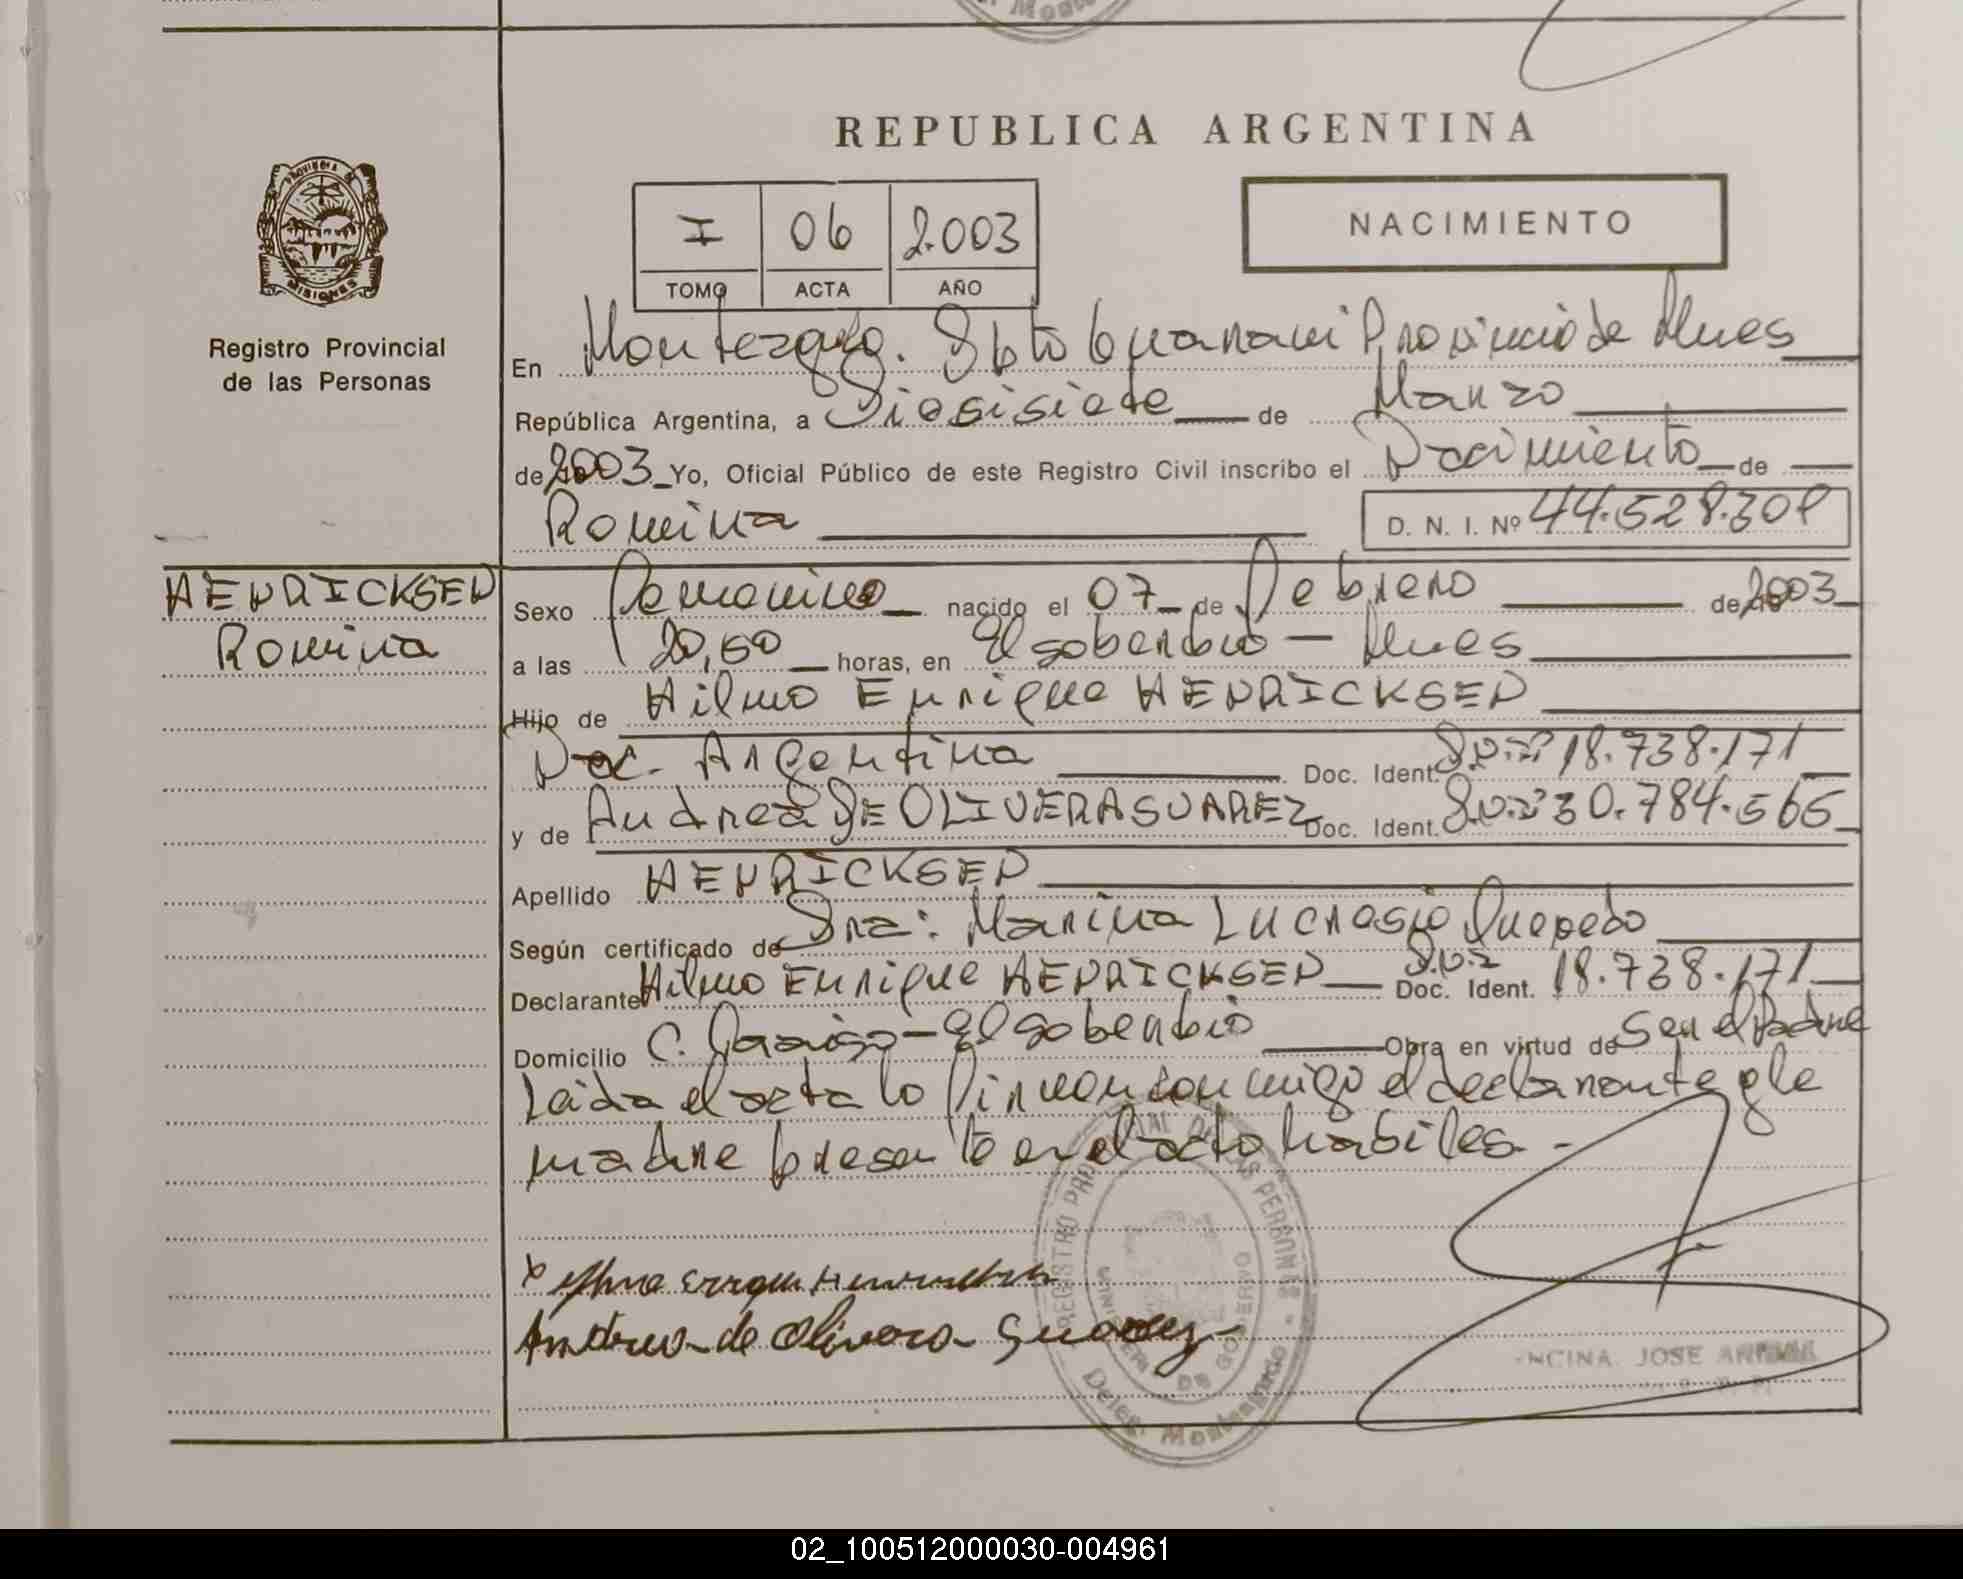 REPUBLICA ARGENTINA
PROVINCIA DE
MISIONES
Registro Provincial
de las Personas
I 06 2.003
TOMO ACTA AÑO
NACIMIENTO
En Dpto Guarani Provincia de Mnes
República Argentina, a Diesisiete de Marzo
de 2003 Yo, Oficial Público de este Registro Civil inscribo el Nacimiento de
Romina D. N. I. Nº 44.528.308
HENRICKSEN
Romina
Sexo Femenino nacido el 07 de Febrero de 2003
a las horas, en El soberbio - Mnes
Hijo de Hilmo Enrique HENRICKSEN
Nac. Argentina Doc. Ident. D.N.I 18.738.171
y de Andrea DE OLIVERA SUAREZ Doc. Ident. D.N.I 30.784.565
Apellido HENRICKSEN
Según certificado de Dra: Marina Lucresia
Declarante Hilmo Enrique HENRICKSEN Doc. Ident. D.N.I 18.738.171
Domicilio C. - El soberbio Obra en virtud de Ser el Padre
Leida el acta lo firman conmigo el declarante y la
madre presente en el acto habiles.-
Andrea de Olivera Suarez
REGISTRO PROVINCIAL DE LAS PERSONAS
MINISTERIO DE GOBIERNO
Deleg. Monteagudo
ENCINA JOSE
02_100512000030-004961